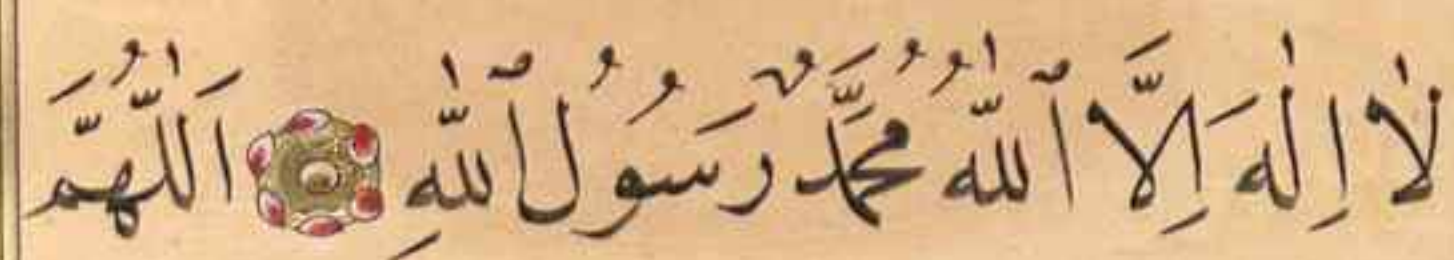 لَا اِلٰهَ اِلَّا ٱللّٰهُ مُحَمَّدٌ رَسُولُ ٱللّٰهِ اَللّٰهُمَّ